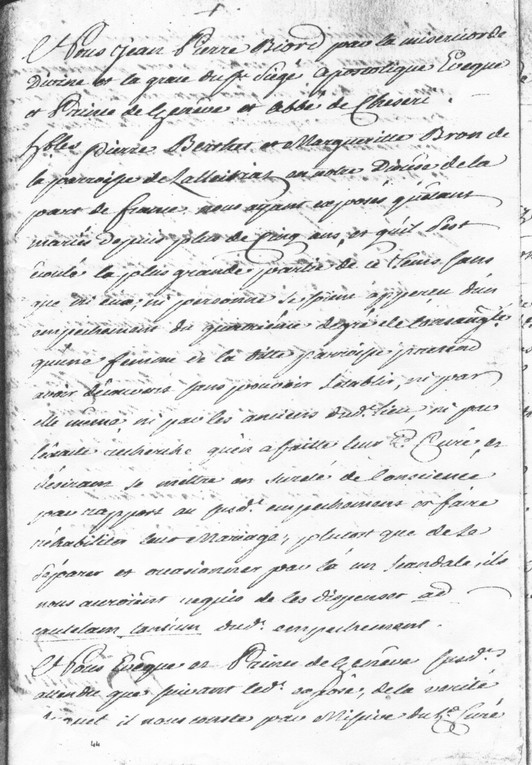 Nous Jean Pierre Biord par la misericorde
Divine et la grace du St Siege apostolique Eveque
et Prince de Geneve et abbé de Cheseri.
Pierre Berthet et Marguerite Bron de
la parroisse de Lalleiriat en notre Diocèse de la
part de france nous ayant exposés qu'étant
mariés depuis plus de cinq ans, et qu'il s'est
écoulé la plus grande partie de ce tems sans
que ni eux, ni personne se soient apperçu d'un
empechement du quatrieme degré de consangté
qu'une femme de la ditte parroisse pretend
avoir découvert sans pouvoir l'etablir, ni par
elle meme, ni par les anciens dud. lieu, ni par
l'exacte recherche qu'en a faitte leur Rd Curé, et
désirant se mettre en sureté de conscience
par rapport au susd. empechement et faire
réhabiliter leur Mariage, plutot que de se
séparer et occasionner par là un scandale, ils
nous auroient requis de les dispenser ad
cautelam tantum dud. empechement.
Nous Evêque et Prince de Genève susd.
attendu que suivant led. exposé, de la verité
duquel il nous conste par Missive du Rd Curé
44